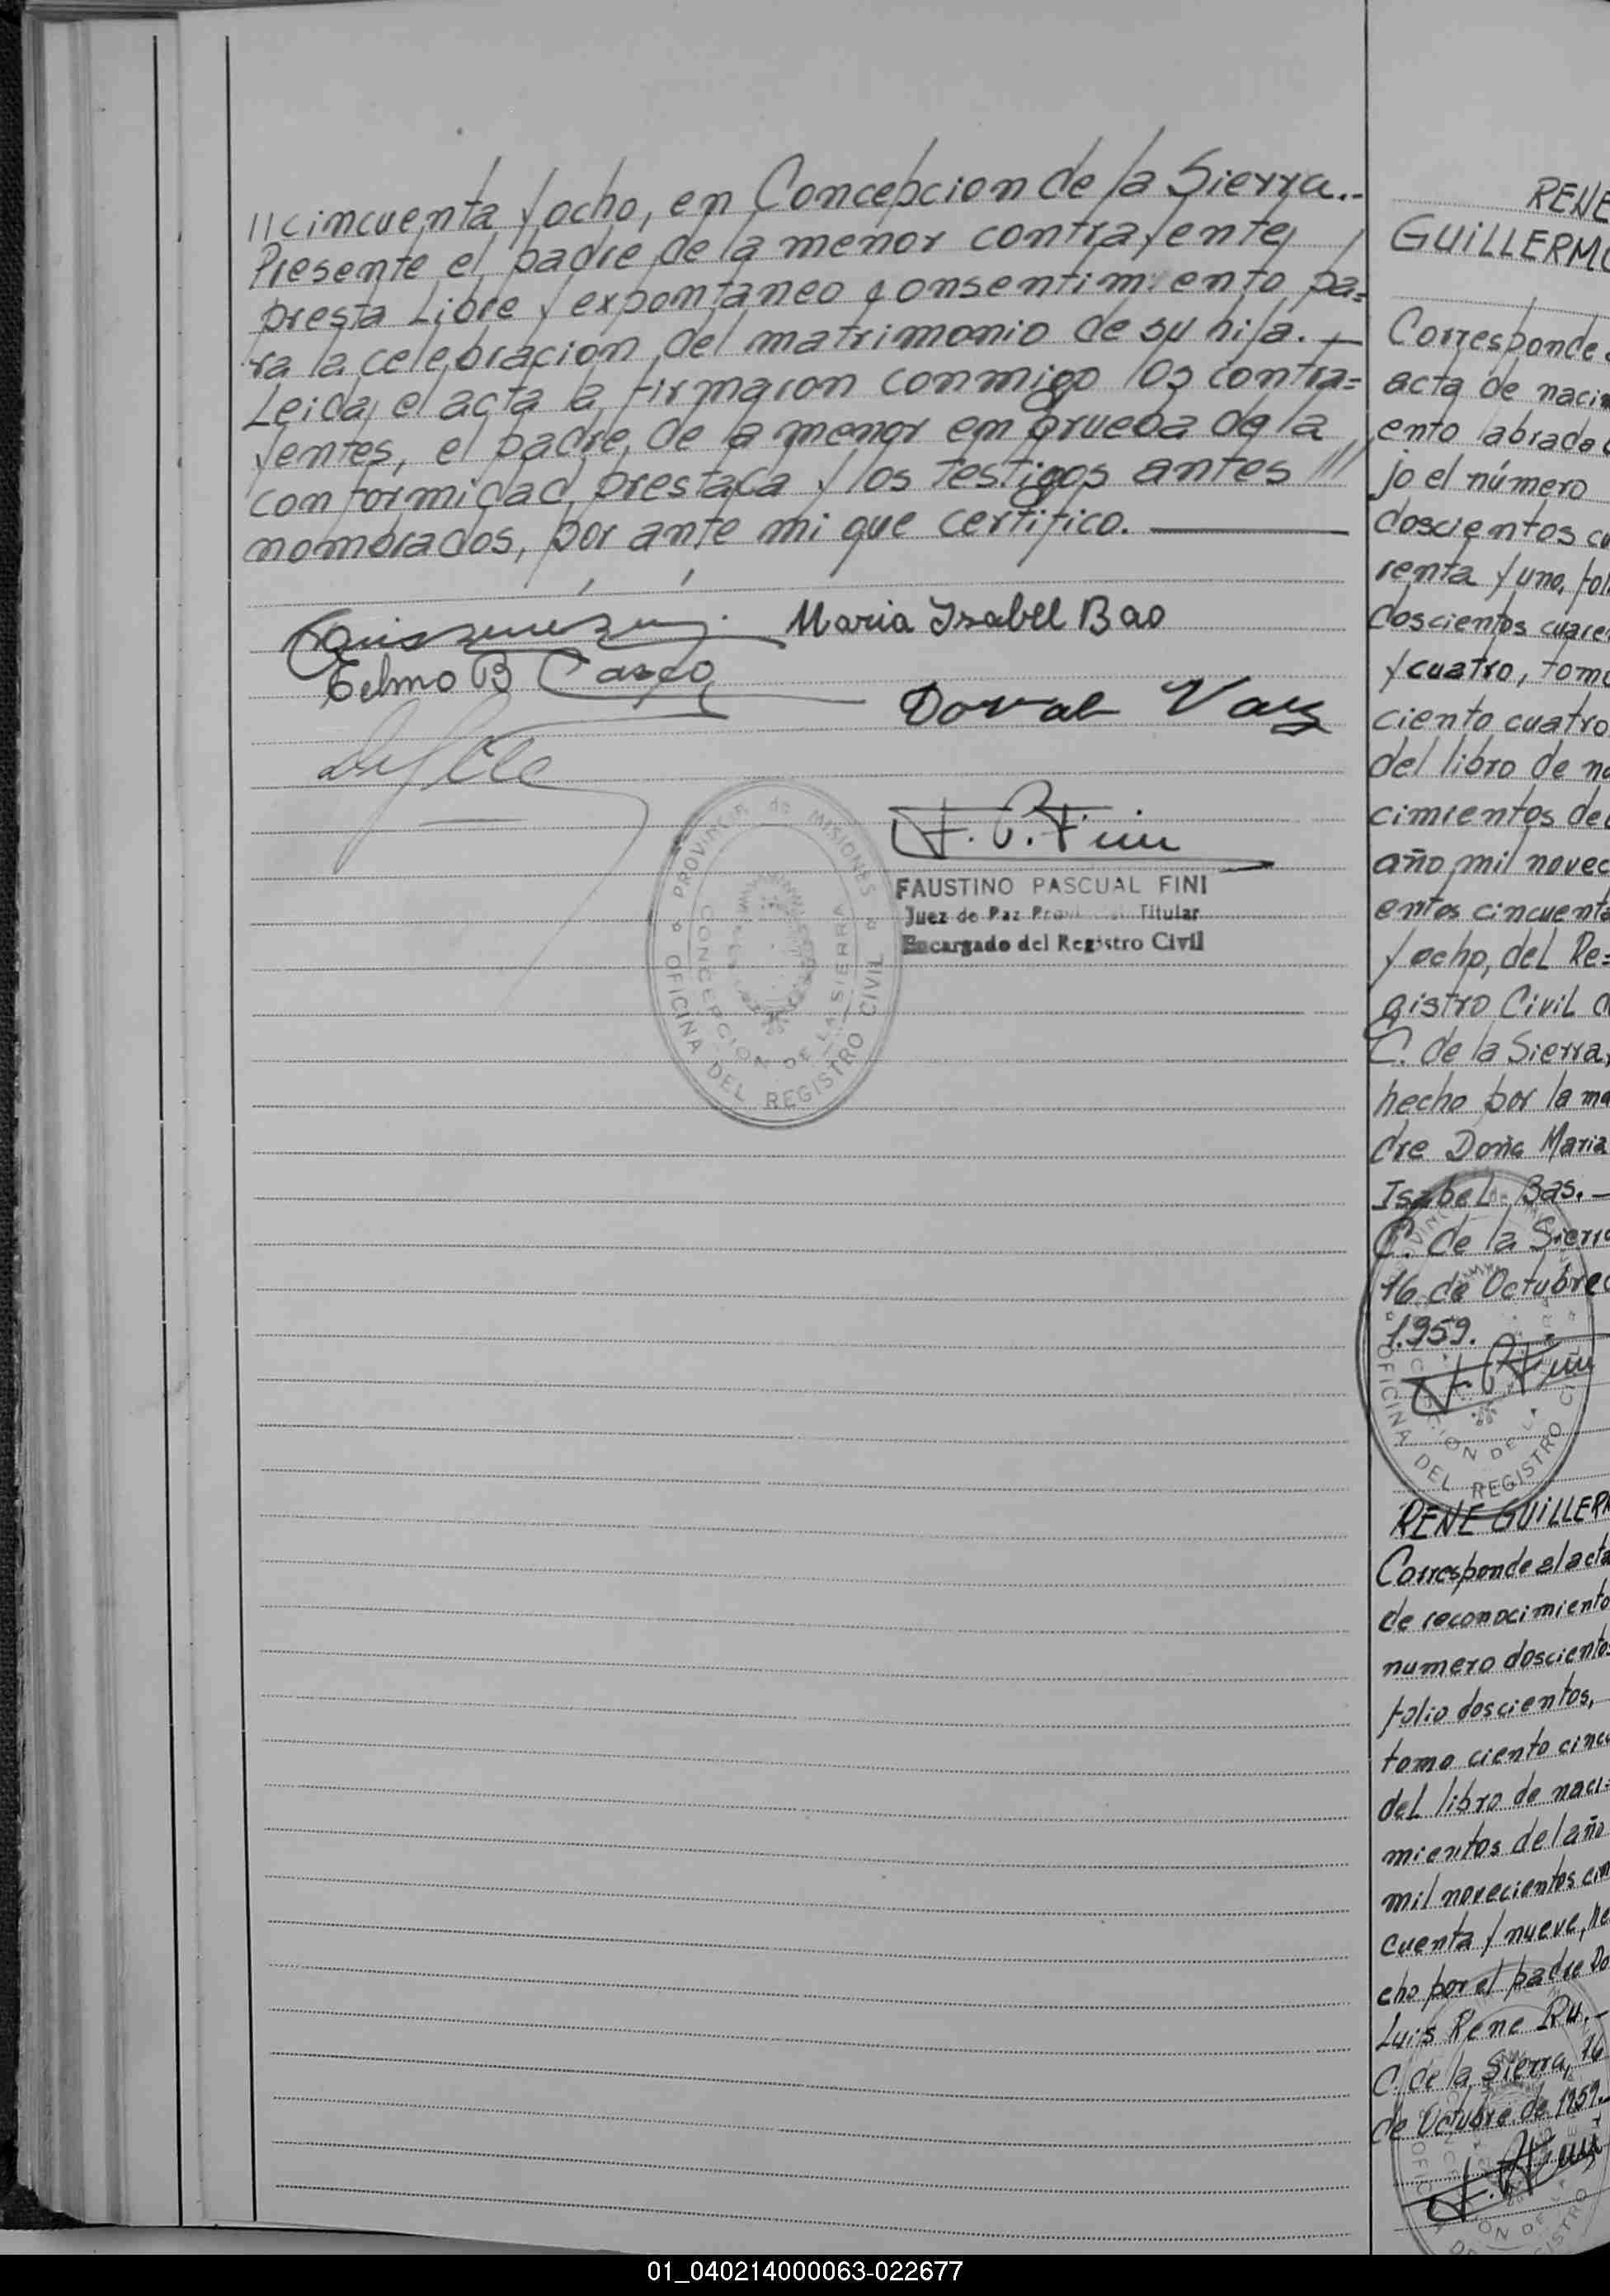 // cincuenta y ocho, en Concepcion de la Sierra..
Presente el padre de la menor contrayente,
presta Libre y expontaneo consentimiento pa=
ra la celebracion del matrimonio de su hija. —
Leida el acta la firmaron conmigo los contra=
yentes, el padre de la menor en prueba de la
conformidad prestada y los testigos antes ///
nombrados, por ante mi que certifico. —
Maria Isabel Bao
Telmo B
Dorval Vaz
F. P. Fini
FAUSTINO PASCUAL FINI
Juez de Paz Provincial Titular
Encargado del Registro Civil
PROVINCIA de MISIONES
OFICINA DEL REGISTRO CIVIL
CONCEPCION DE LA SIERRA
RENE
GUILLERMO
Corresponde
acta de nacim
ento labrado
jo el número
doscientos cu
renta y uno, fol
doscientos cuare
y cuatro, tomo
ciento cuatro
del libro de na
cimientos del
año mil novec
entos cincuenta
y ocho, del Re=
gistro Civil d
C. de la Sierra,
hecho por la ma
dre Doña Maria
Isabel Bas. —
C. de la Sierra
16 de Octubre
1.959.
F. P. Fini
OFICINA DEL REGISTRO CI
RENE GUILLERM
Corresponde al acta
de reconocimiento
numero doscientos
folio doscientos,
tomo ciento cinco
del libro de naci=
mientos del año
mil novecientos cin
cuenta y nueve, he
cho por el padre Do
Luis Rene Ru. —
C. de la Sierra, 16
de Octubre de 1959.—
F. P. Fini
01_040214000063-022677